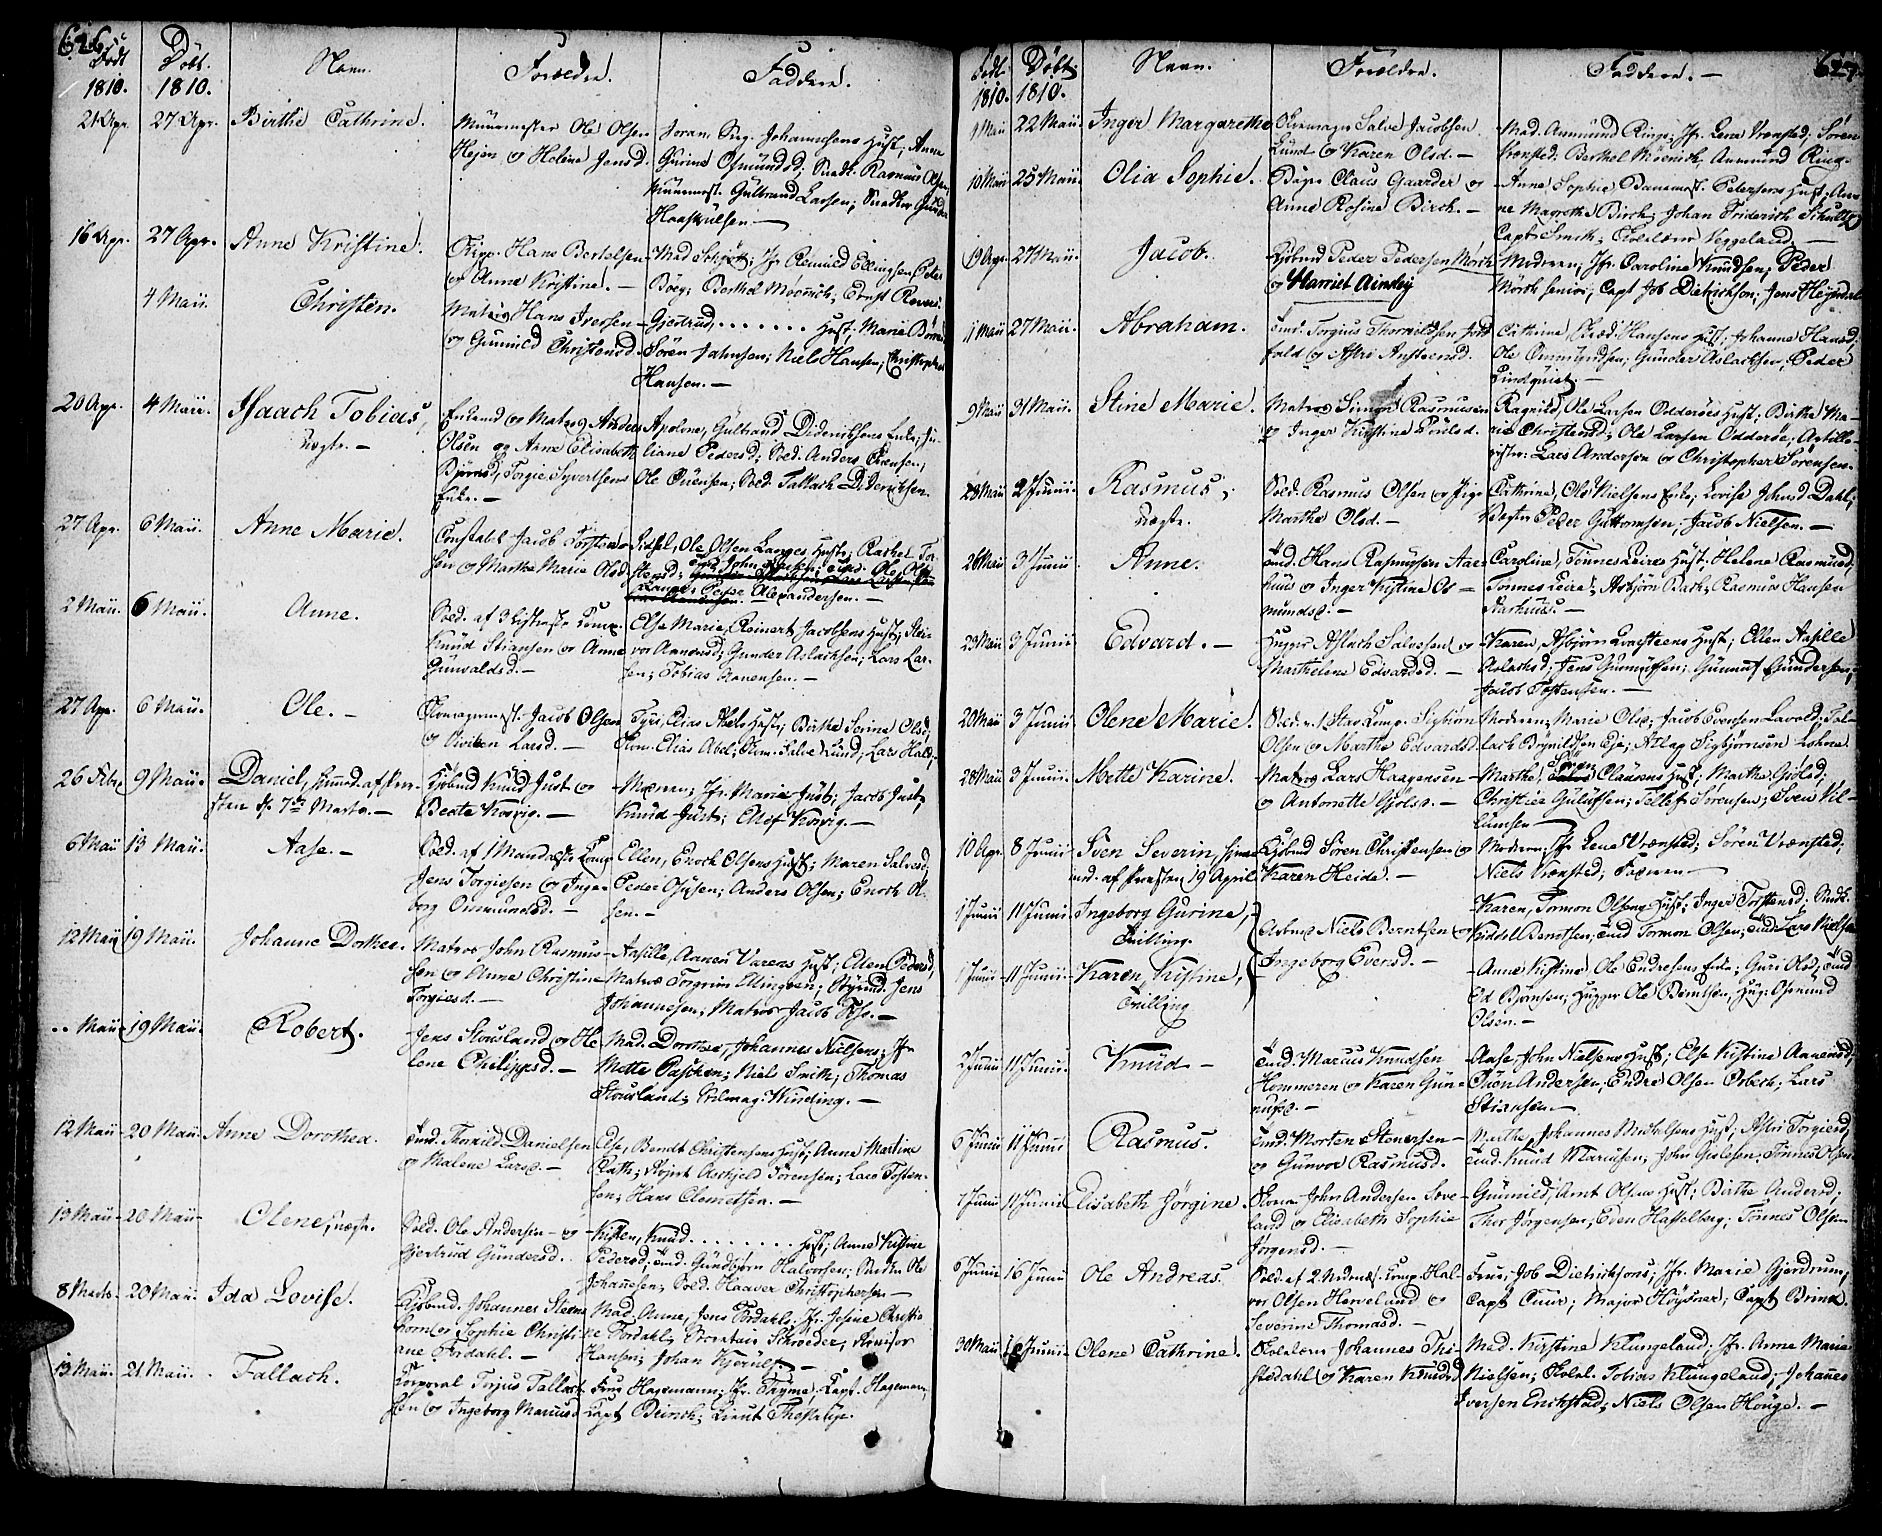 626.
Födt 1810. Döbt. 1810. Navn. Forældre. Faddere.
21 Apr. 27 Apr. Birthe Cathrine. Muurmester Ole Olsen
Hejen og Helene Jensd.
Joran, Sirg. Johannesens Hust, Anne
Gurine Osmündsd; Snedk. Rasmus Olsen,
Müürmest. Gulbrand Larsen; Snedker Gunder
Haaskülsen —
16 Apr. 27 Apr. Anne Kristine. Hans Bertelsen
og Anne Kristine. —
Jfr Reinild Ellingsen, Peter
Böeg; Berthel Moenich, Ernst
4 Maii. Christen. Matros Hans Iversen
og Gunnild Christensd.
Gjertrud, . . . . . . . Hust, Marie
Sören Jahnsen; Niel Hansen, Christopher
Hansen. —
20 Apr. 4 Maii. Isaach Tobias,
uægte. —
Enkemd og Matros Anders
Olsen og Anne Elisabeth
Björnsd, Torgie Syvertsens
Enke. —
Apolone, Gulbrand Dideriksens Enke;
liane Pedersd; Sold. Anders Ouensen,
Ole Ouensen; Sold. Tallach Dideriksen.
27 Apr. 6 Maii. Anne Marie. Constabel Jacob Torsten-
sen og Marthe Marie Olsd.
Sidsel, Ole Olsen Langes Hust; Rachel Tor-
stensd;
Alexandersen. —
2 Maii. 6 Maii. Anne. Sold. af 3 Listerske Komp.
Knüd Stiansen og Anne
Gunvaldsd. —
Else Marie, Reinert Jacobsens Hust;
vor Aanensd; Gunder Aslachsen; Lars Lar-
sen; Tobias Aanensen. —
27 Apr. 6 Maii. Ole. — Skomagermest. Jacob Olsen
og Viviken Larsd. —
Elias Abels Hust, Birthe Sonne Olsd,
Skom. Elias Abel; Skom. Salve Lund; Lars Hald;
26 Febr 9 Maii. Daniel, hiemd. af Præ-
sten d. 7de Marts. —
Kjöbmd Knud Just og
Beate Korvig. —
Moeren; Jfr. Marie Just; Jacob Just,
Knud Just; Ellef Korvig. —
6 Maii 13 Maii. Aase. — Sold. af 1 Mandalske Komp
Jens Torgiesen og Inge-
borg Ommundsd. —
Ellen, Enoch Olsens Hust; Maren Salvesd,
Peder Osüsen; Anders Olsen; Enoch Ol-
sen. —
12 Maii 19 Maii. Johanne Dorthea. Matros John Rasmus-
sen og Anne Christine
Torgiesd. —
Aasille, Aanen Varens Hust; Ellen Pedersd,
Matros Torgrim Ellingsen; Styrmd. Jens
Johannesen; Matros Jacob —
. . Maii 19 Maii. Robert. Jens Stousland og He
lene Philipsd. —
Mad. Dorothe, Johannes Nielsens; Jfr
Mette Paschen; Niel Smith; Thomas
Stousland; Uhrmag. Winding. —
12 Maii 20 Maii. Anne Dorothea. Ümd. Thorkild Danielsen
og Malene Larsd. —
Else, Bendt Christensens Hust; Anne Martine
Rath; Askjeld Sörensen; Lars Tosten-
sen; Hans Clemetsen. —
13 Maii 20 Maii Olene, uægte. Sold. Ole Andersen — og
Gjertrud Gündersd.
Kisten, Knud . . . . . . . . Hust; Anne Kistine
Pedersd, Ümd. Gundbjörn Halvorsen; Snedker Ole
Johannesen; Sold. Haaver Christophersen —
8 Marts. 20 Maii. Ida Lovise. Kjöbmd. Johannes Steens
horn og Sophie Christi-
ane Fordahl. —
Mad. Anne, Jens Fordahls; Jfr. Josine Christi-
ne Fordahl; Schröeder, Revisor
Hansen; Johan Kjerulf —
13 Maii. 21 Maii. Tallach. Korporal Torjus Tallach
sen og Ingeborg Marcusd
Frue Hagemann; Jfr. Thyme; Capt. Hagemann
Capt Brinch; Lieut. Thostrup.
627.
Födt 1810. Döbt 1810. Navn. Forældre. Faddere. —
1 Maii 22 Maii. Inger Margarethe Skomager Salve Jacobsen
Lund og Karen Olsd. —
Mad. Anmund Rings; Jfr. Lene Vrensted; Sören
Vrensted; Berthel Möenich, Anmund Ring. —
10 Maii 25 Maii. Olia Sophie. Claus Gaarder og
Anne Rosine Birch. —
Anne Sophie Pedersens Hust, An-
ne Magrethe Birch; Johan Friderich Schultz
Capt Smith; Veggeland —
19 Apr. 27 Maii. Jacob. Kjöbmd Peder Pedersen Mörch
og Harriet Ainsley
Moderen; Jfr Caroline Knudsen; Peder
Mörch senior; Capt Job Dietrichson; Jens Heyerdal
11 Maii 27 Maii. Abraham. Ümd. Torgius Thorkildsen
fald og Astri Anstensd.
Cathrine, Hansens Hust, Johanne Hansd;
Ole Ommundsen; Gunder Aslachsen; Peder
Lindquist —
9 Maii 31 Maii. Stine Marie. Matros Simon Rasmussen
og Inger Kirstine Poulsd.
Ragnild, Ole Larsen Odderöes Hust; Birthe Ma-
rie Christensd; Ole Larsen Odderöe, Artille-
rister Lars Andersen og Christopher Sörensen.
28 Maii 2 Junii. Rasmus,
uægte.
Sold. Rasmus Olsen og Pige
Marthe Olsd. —
Cathrine, Ole Nielsens Enke; Lovise Johnsd Dahl;
Peder Guttormsen, Jacob Nielsen. —
26 Maii 3 Junii Anne. Ümd. Hans Rasmussen Aar-
huus og Inger Kistine Os —
mundsd. —
Caroline, Tönnes Leires Hust. Helene Rasmusd;
Tönnes Leire; Asbjörn Bach; Rasmus Hansen
Aarhuus. —
23 Maii 3 Junii Edvard. — Aslach Salvesen og
Marthelene Edvardsd. —
Karen, Asbjörn Hust; Ellen Aasille
Aslachsd; Jens Gunnufsen; Gunnuf Gündersen;
Jacob Tostensen. —
20 Maii 3 Junii. Olene Marie. Sold. v. 1 Stav. Komp. Sigbjörn
Olsen og Marthe Edvardsd
Moderen; Marie Olsd; Jacob Evensen Lavold, Tal-
lach Brynildsen Eje; Atlag Sigbjörnsen Lohne
28 Maii 3 Junii. Mette Karine. Matros Lars Haagensen
og Antonette Gjölsd. —
Marthe, Sören Clausens Hust; Marthe Gjölsd;
Christen Gulufsen; Tellef Sörensen; Sven Vil-
lumsen —
10 Apr. 8 Junii Sven Severin, hjem-
md. af Præsten 19 April
Kjöbmd Sören Christensen og
Karen Heide. —
Moderen, Jfr Lene Vrensted; Sören Vrensted;
Niels Vrensted; Faderen —
1 Junii 11 Junii Ingeborg Gurine,
Tvilling.
Arbmd Niels Berntsen og
Ingeborg Eversd. —
Karen, Tormon Olsens Hust; Inger Torstensd;
Kiddel Berntsen; Ümd Tormon Olsen; Ümd Lars Nielsen
1 Junii 11 Junii Karen Kistine,
Tvilling
Anne Kistine, Ole Endresens Enke; Guri Olsd; Ümd
Ed Bjömsen; Ole Berntsen, Osmund
Olsen. —
2 Junii 11 Junii. Knüd — Ümd. Marcus Knudsen
Hommeren og Karen Gün-
nufsd. —
Aase, John Nielsens Hust; Else Kistine Aanensd;
Sören Andersen; Endre Olsen Orbech, Lars
Stiansen —
6 Junii 11 Junii Rasmus. Ümd. Morten Stenersen —
og Günvor Rasmusd.
Marthe, Johannes Michelsens Hust; Astri Torgiesd;
Ümd. Knud Marcusen; John Gislesen; Tönnes Olsen
7 Junii 11 Junii Elisabeth Jörgine. Skom. John Andersen Sve-
land og Elisabeth Sophie
Jörgensd. —
Gunnild, Arnt Olsens Hust; Birthe Andersd;
Thor Jörgensen; Even Hasselberg; Tönnes Olsen
6 Junii 16 Junii Ole Andreas. Sold. af 2. Komp. Hal-
vor Olsen Herveland og
Severine Thomasd. —
Frue, Job Dietrichsons; Jfr. Marie Gjerdrum,
Capt Cuur; Major Höyer, Capt Brinch.
30 Maii 16 Junii. Olene Cathrine. Johannes Thi-
stedahl og Karen Knudsd
Mad. Kirstine Klungeland. Jfr. Anne Marie
Nielsen; Tobias Klungeland; Johannes
Iversen Enchstad; Niels Olsen Houge. —